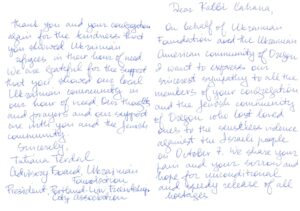 Dear Rabbi Cahana,
On behalf of Ukrainian
Foundation and the Ukrainian
American community of Oregon
I want to express our
sincerest sympathy to all the
members of your congregation
and the Jewish community
of Oregon who lost loved
ones to the senseless violence
against the Israeli people
on October 7. We share your
pain and your sorrow and
hope for unconditional
and speedy release of all
hostages
Thank you and your congregation
again for the kindness that
you showed Ukrainian
refugees in their hour of need.
We are grateful for the support
that you showed our local
Ukrainian community in
our hour of need. Our thoughts
and prayers and our support
are with you and the Jewish
community.
Sincerely,
Tatiana
Advisory Board, Ukrainian
Foundation
President Portland-Lviv
City Association